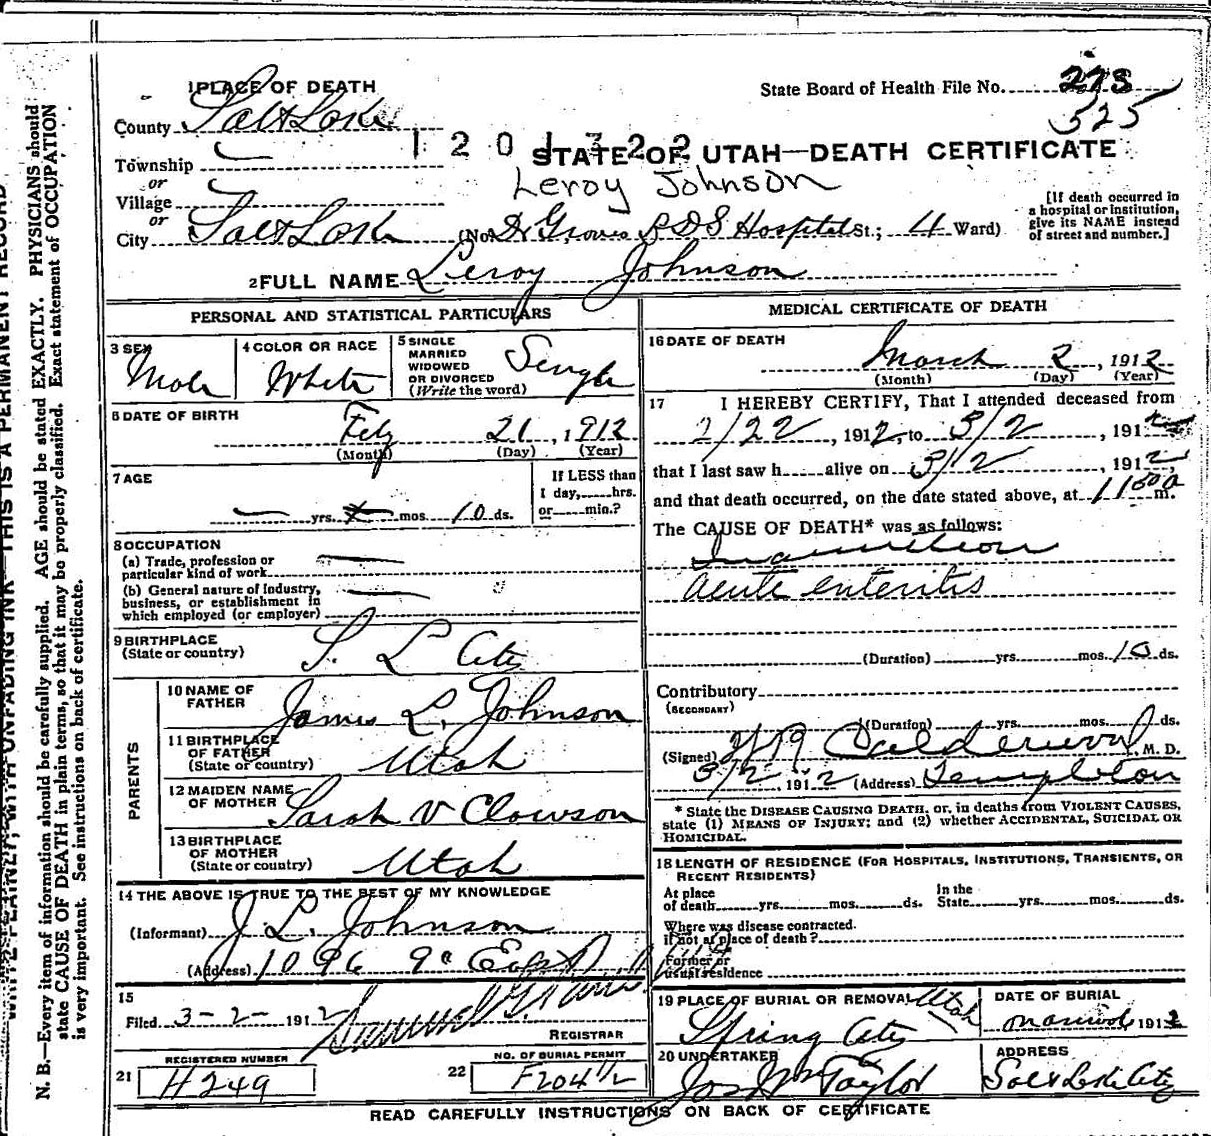 1 PLACE OF DEATH
State Board of Health File No. 273
525
County Salt Lake
1201322
STATE OF UTAH—DEATH CERTIFICATE
Township
or
Leroy Johnson
Village
or
City Salt Lake (No. Dr Groves LDS Hospital St.; 4 Ward)
[If death occurred in
a hospital or institution,
give its NAME instead
of street and number.]
2 FULL NAME Leroy Johnson
PERSONAL AND STATISTICAL PARTICULARS
3 SEX Male
4 COLOR OR RACE White
5 SINGLE
MARRIED
WIDOWED
OR DIVORCED
(Write the word) Single
6 DATE OF BIRTH
Feb 21, 1912
(Month) (Day) (Year)
7 AGE
yrs. mos. 10 ds.
If LESS than
1 day, hrs.
or min.?
8 OCCUPATION
(a) Trade, profession or
particular kind of work
(b) General nature of industry,
business, or establishment in
which employed (or employer)
9 BIRTHPLACE
(State or country) S. L City
PARENTS
10 NAME OF
FATHER James L. Johnson
11 BIRTHPLACE
OF FATHER
(State or country) Utah
12 MAIDEN NAME
OF MOTHER Sarah V Clawson
13 BIRTHPLACE
OF MOTHER
(State or country) Utah
14 THE ABOVE IS TRUE TO THE BEST OF MY KNOWLEDGE
(Informant) J L. Johnson
(Address) 1096 9th East
15
Filed 3-2- 1912
REGISTRAR
REGISTERED NUMBER
21 H249
NO. OF BURIAL PERMIT
22 F204 1/2
MEDICAL CERTIFICATE OF DEATH
16 DATE OF DEATH
March 2, 1912
(Month) (Day) (Year)
17 I HEREBY CERTIFY, That I attended deceased from
2/22, 1912, to 3/2, 191
that I last saw h alive on 3/2, 1912,
and that death occurred, on the date stated above, at 1100 a m.
The CAUSE OF DEATH* was as follows:
Inanition
acute enteritis
(Duration) yrs. mos. 10 ds.
Contributory
(SECONDARY)
(Duration) yrs. mos. ds.
(Signed) Calderwood M. D.
3/2, 1912 (Address) Templeton
* State the DISEASE CAUSING DEATH, or, in deaths from VIOLENT CAUSES,
state (1) MEANS OF INJURY; and (2) whether ACCIDENTAL, SUICIDAL OR
HOMICIDAL.
18 LENGTH OF RESIDENCE (FOR HOSPITALS, INSTITUTIONS, TRANSIENTS, OR
RECENT RESIDENTS)
At place
of death yrs. mos. ds.
In the
State yrs. mos. ds.
Where was disease contracted.
if not at place of death?
Former or
usual residence
19 PLACE OF BURIAL OR REMOVAL Utah
Spring City
DATE OF BURIAL
191
20 UNDERTAKER
Jos Wm Taylor
ADDRESS
Salt Lake City
READ CAREFULLY INSTRUCTIONS ON BACK OF CERTIFICATE
WRITE PLAINLY, WITH UNFADING INK—THIS IS A PERMANENT RECORD
N. B.—Every item of information should be carefully supplied. AGE should be stated EXACTLY. PHYSICIANS should
state CAUSE OF DEATH in plain terms, so that it may be properly classified. Exact statement of OCCUPATION
is very important. See instructions on back of certificate.